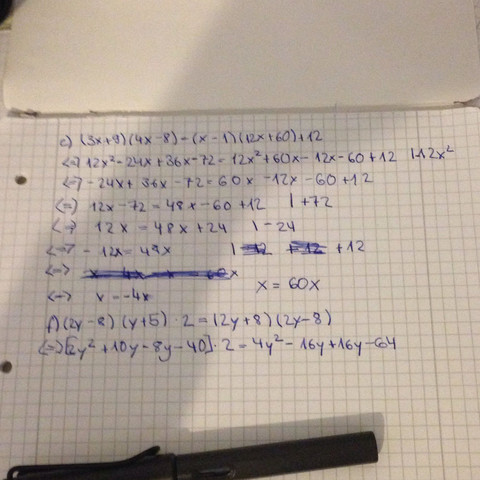 e) (3x+9)(4x-8) = (x-1)(12x+60)+12
<=> 12x²-24x+36x-72=12x²+60x-12x-60+12 |-12x²
<=> -24x+36x-72=60x-12x-60+12
<=> 12x-72=48x-60+12 |+72
<=> 12x=48x+24 |-24
<=> -12x=48x | +12
<=>
<=> x=-4x x=60x
f) (2y-8)(y+5)·2=(2y+8)(2y-8)
<=> [2y²+10y-8y-40]·2=4y²-16y+16y-64